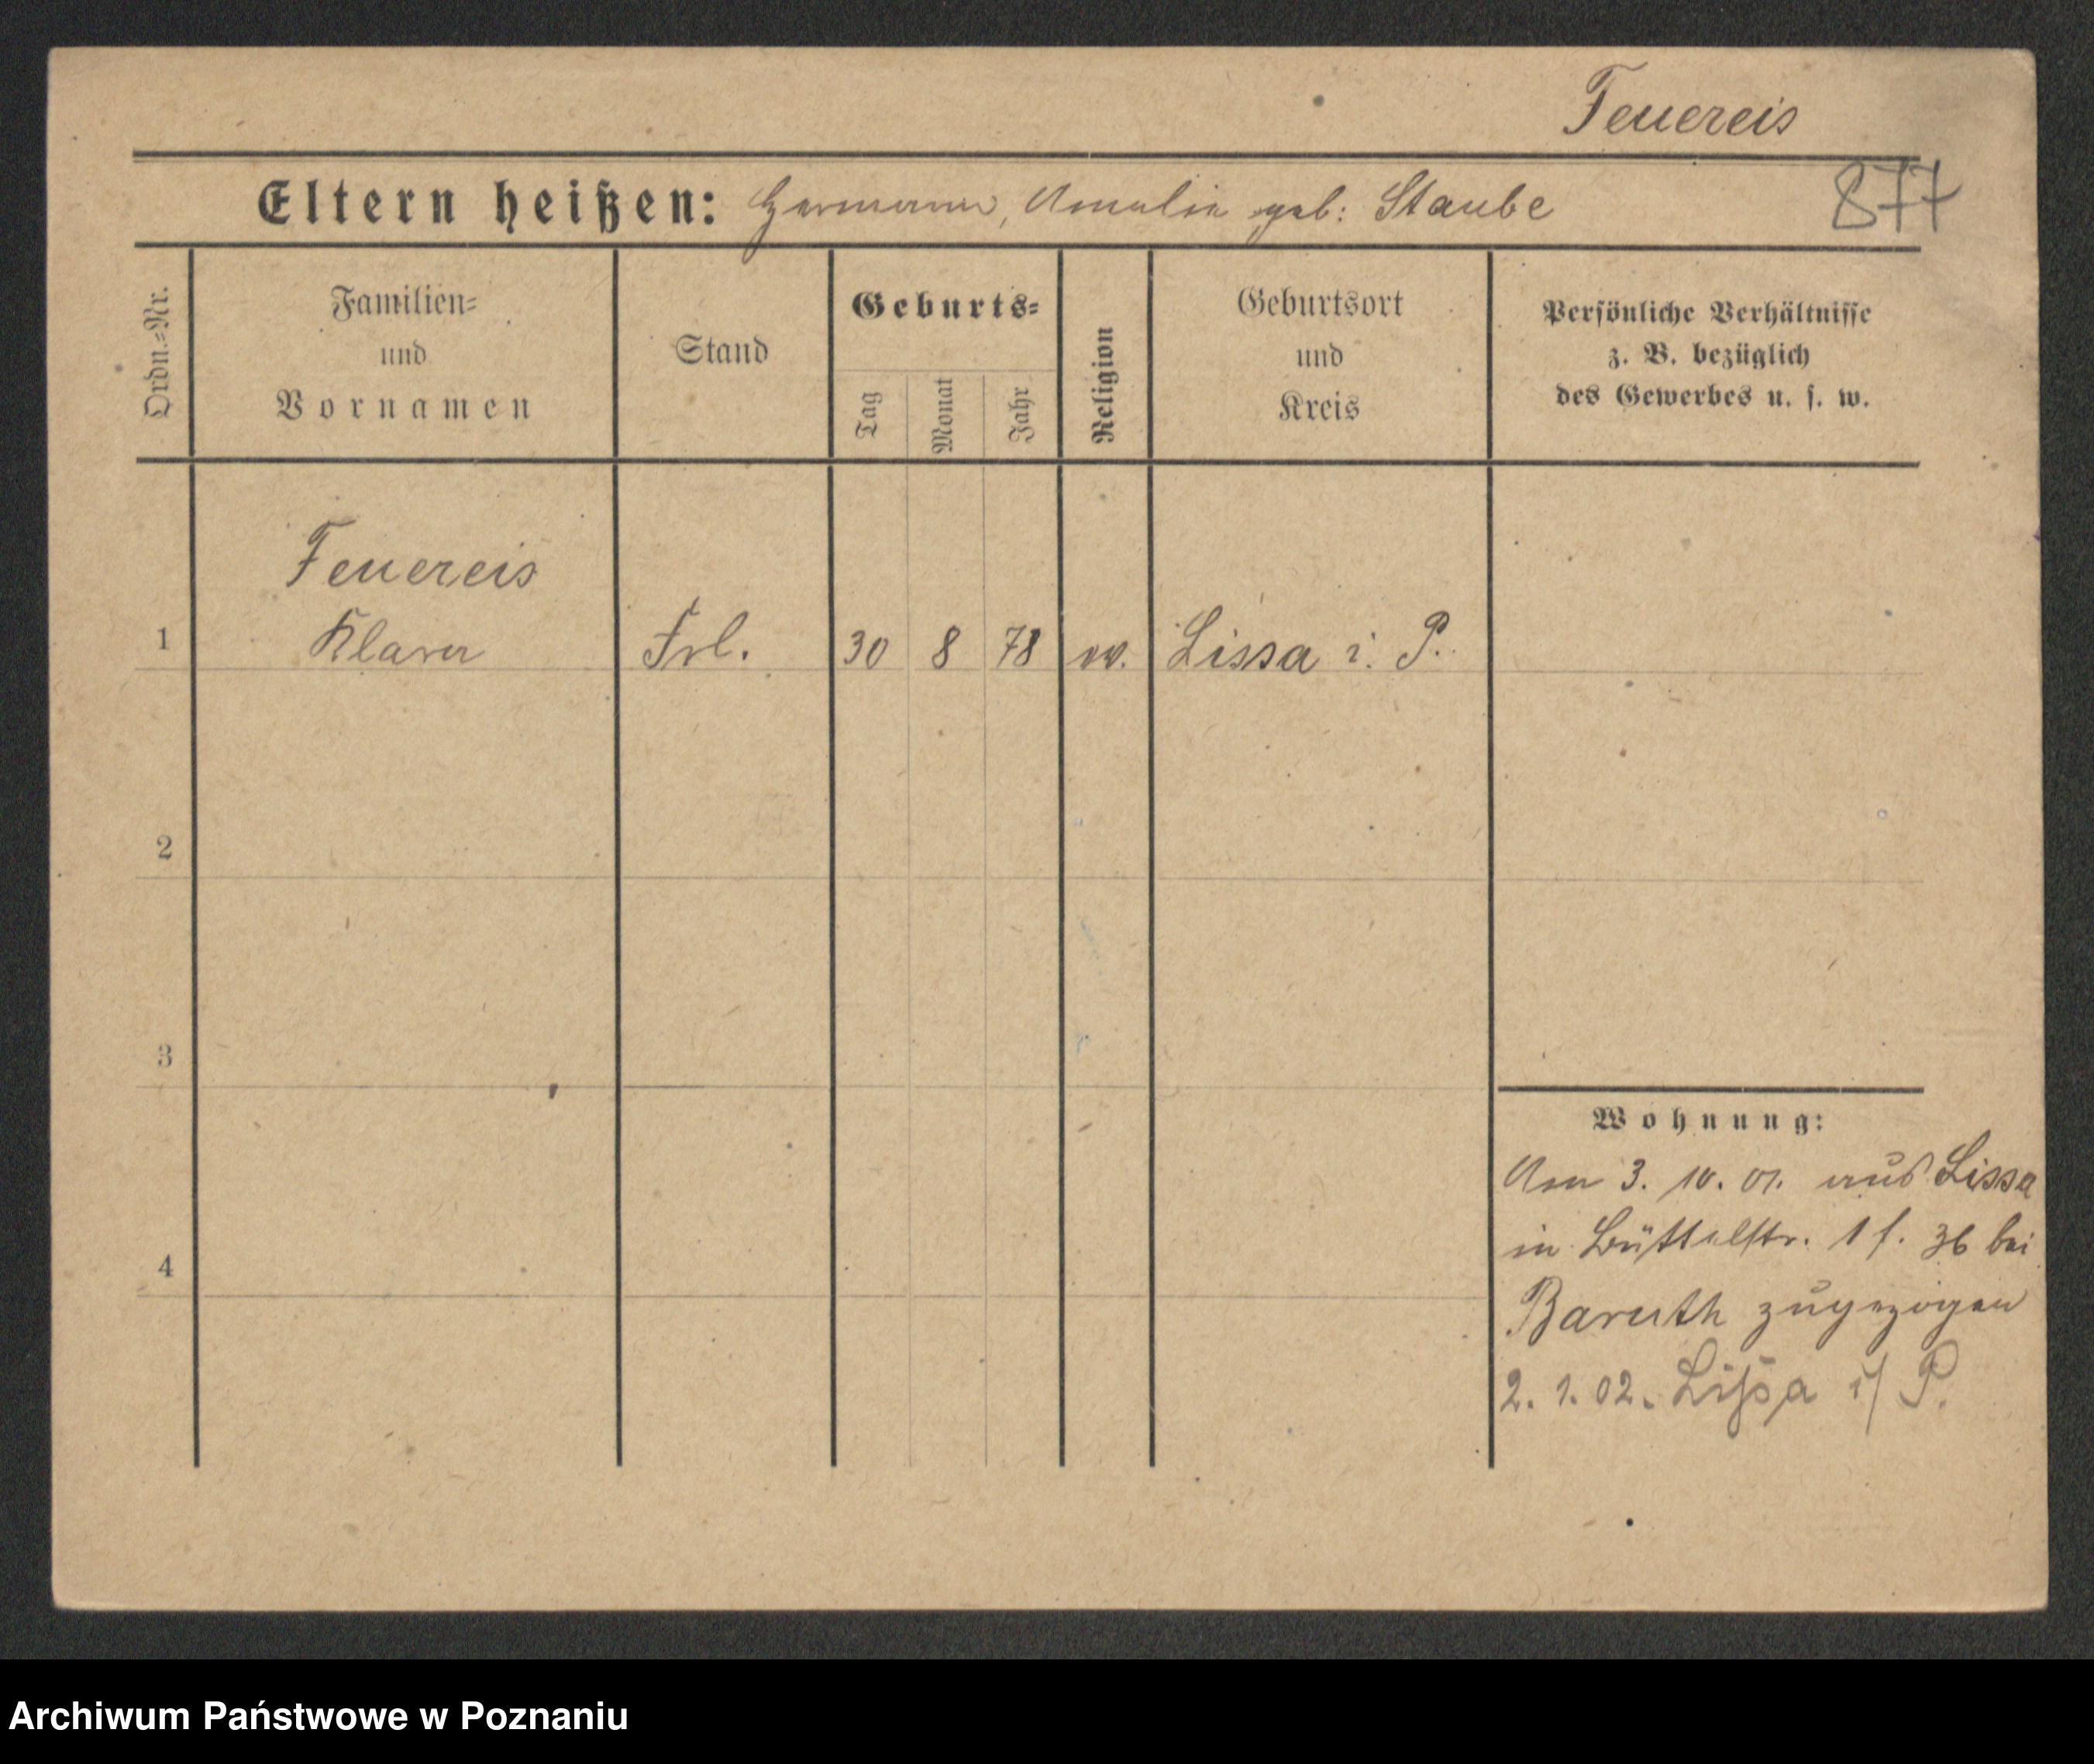 Feuereis
Eltern heißen: Hermann, Amalie geb: Staube
877
Ordn.=Nr.
Familien=
und
Vornamen
Stand
Geburts=
Tag
Monat
Jahr
Religion
Geburtsort
und
Kreis
Persönliche Verhältnisse
z. B. bezüglich
des Gewerbes u. s. w.
Feuereis
1 Klara Frl. 30 8 78 ev. Lissa i. P.
2
3
4
Wohnung:
Am 3. 10. 01. aus Lissa
in Büttelstr. 1 f. 36 bei
Baruth zugezogen
2. 1. 02. Lißa i/ P.
Archiwum Państwowe w Poznaniu